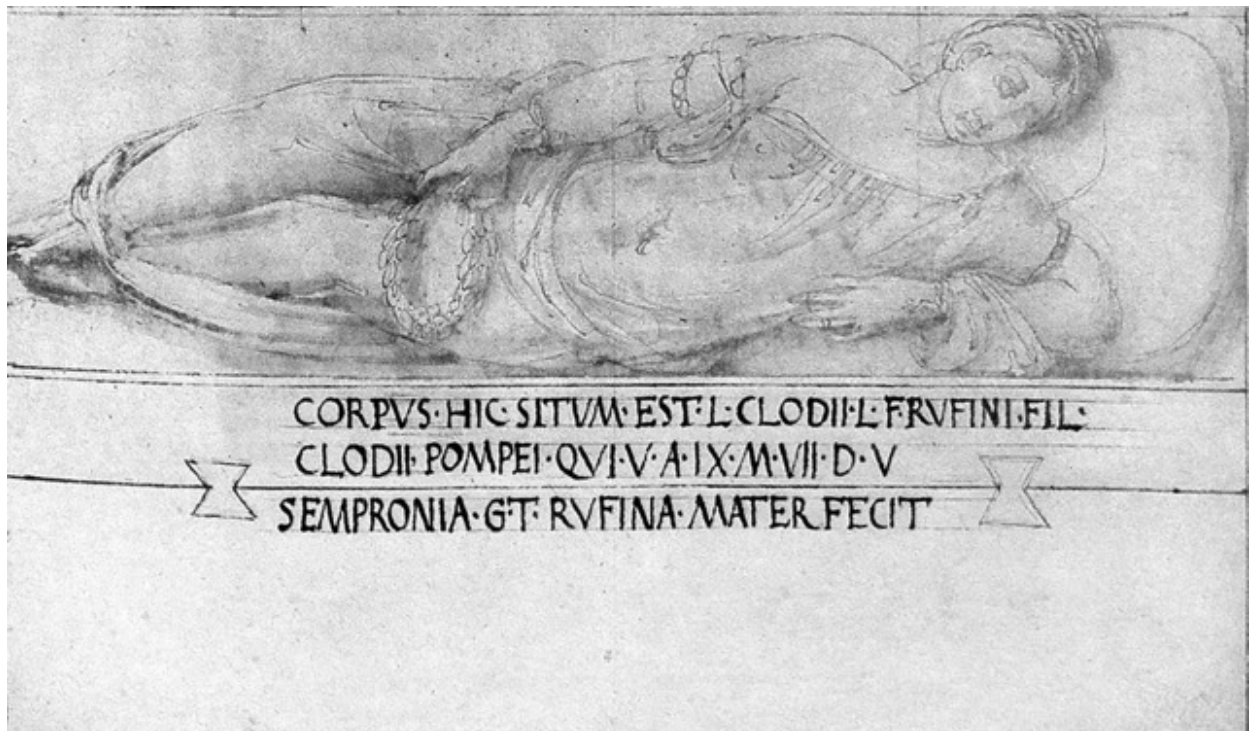 CORPVS·HIC·SITVM·EST·L·CLODII·L·F·RVFINI·FIL·
CLODII·POMPEI·QVI·V·A·IX·M·VII·D·V
SEMPRONIA·G·T·RVFINA·MATER FECIT